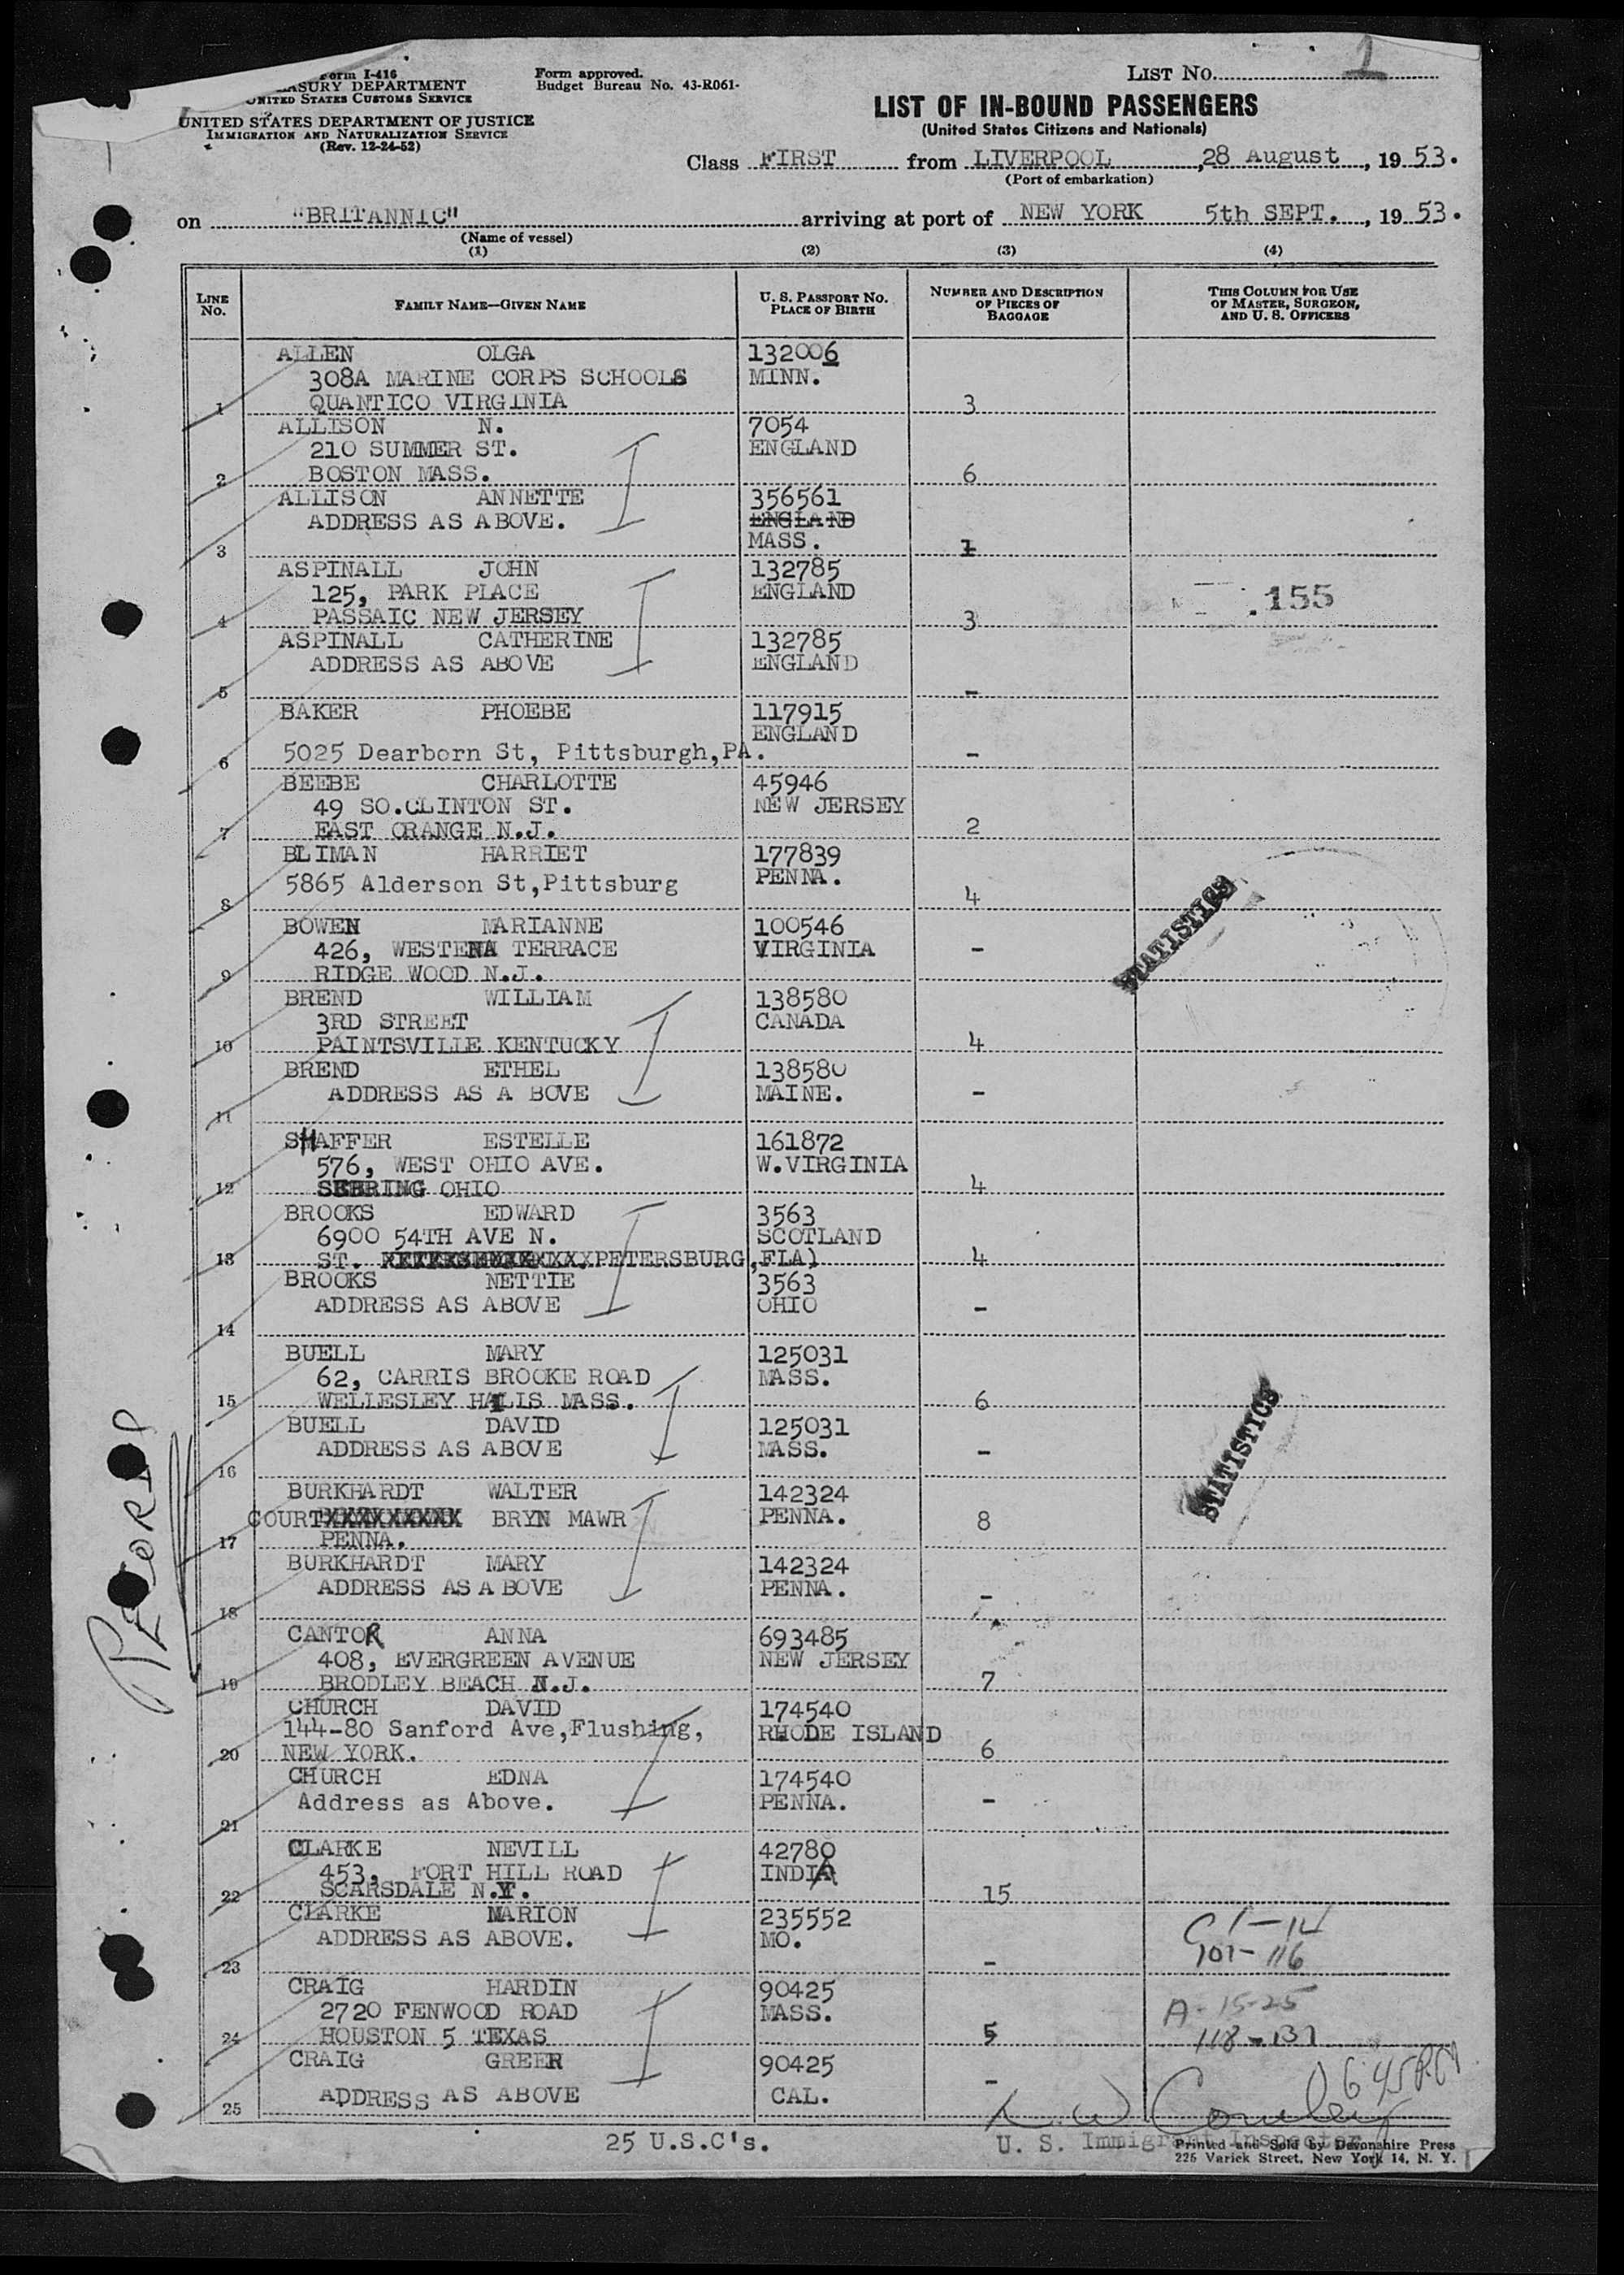 Form I-416
TREASURY DEPARTMENT
UNITED STATES CUSTOMS SERVICE
UNITED STATES DEPARTMENT OF JUSTICE
IMMIGRATION AND NATURALIZATION SERVICE
(Rev. 12-24-52)
Form approved.
Budget Bureau No. 43-R061-
LIST NO. 1
LIST OF IN-BOUND PASSENGERS
(United States Citizens and Nationals)
Class FIRST from LIVERPOOL, 28 August, 1953.
(Port of embarkation)
on "BRITANNIC" arriving at port of NEW YORK 5th SEPT., 1953.
(Name of vessel)
(1) (2) (3) (4)
LINE NO. FAMILY NAME—GIVEN NAME U. S. PASSPORT NO. PLACE OF BIRTH NUMBER AND DESCRIPTION OF PIECES OF BAGGAGE THIS COLUMN FOR USE OF MASTER, SURGEON, AND U. S. OFFICERS
ALLEN OLGA 132006
308A MARINE CORPS SCHOOLS MINN.
1 QUANTICO VIRGINIA 3
ALLISON N. 7054
210 SUMMER ST. ENGLAND
2 BOSTON MASS. 6
ALLISON ANNETTE 356561
ADDRESS AS ABOVE. ENGLAND
3 MASS. 1
ASPINALL JOHN 132785
125, PARK PLACE ENGLAND 155
4 PASSAIC NEW JERSEY 3
ASPINALL CATHERINE 132785
ADDRESS AS ABOVE ENGLAND
5 -
BAKER PHOEBE 117915
ENGLAND
6 5025 Dearborn St, Pittsburgh,PA. -
BEEBE CHARLOTTE 45946
49 SO.CLINTON ST. NEW JERSEY
7 EAST ORANGE N.J. 2
BLIMAN HARRIET 177839
5865 Alderson St,Pittsburg PENNA.
8 4
STATISTICS
BOWEN MARIANNE 100546
426, WESTENA TERRACE VIRGINIA -
9 RIDGE WOOD N.J.
BREND WILLIAM 138580
3RD STREET CANADA
10 PAINTSVILLE KENTUCKY 4
BREND ETHEL 138580
ADDRESS AS A BOVE MAINE. -
11
SHAFFER ESTELLE 161872
576, WEST OHIO AVE. W.VIRGINIA
12 SEBRING OHIO 4
BROOKS EDWARD 3563
6900 54TH AVE N. SCOTLAND
13 ST. PETERSBURG,FLA) 4
BROOKS NETTIE 3563
ADDRESS AS ABOVE OHIO -
14
BUELL MARY 125031
62, CARRIS BROOKE ROAD MASS.
15 WELLESLEY HILLS MASS. 6
BUELL DAVID 125031
ADDRESS AS ABOVE MASS. -
16
STATISTICS
BURKHARDT WALTER 142324
COURT BRYN MAWR PENNA. 8
17 PENNA.
BURKHARDT MARY 142324
ADDRESS AS A BOVE PENNA. -
18
CANTOR ANNA 693485
408, EVERGREEN AVENUE NEW JERSEY
19 BRODLEY BEACH N.J. 7
CHURCH DAVID 174540
144-80 Sanford Ave,Flushing, RHODE ISLAND
20 NEW YORK. 6
CHURCH EDNA 174540
Address as Above. PENNA. -
21
CLARKE NEVILL 42780
453, FORT HILL ROAD INDIA
22 SCARSDALE N.Y. 15
CLARKE MARION 235552
ADDRESS AS ABOVE. MO.
23 - 101-116
CRAIG HARDIN 90425
2720 FENWOOD ROAD MASS. A-15-25
24 HOUSTON 5 TEXAS 5
CRAIG GREER 90425
ADDRESS AS ABOVE CAL. -
25
25 U.S.C's.
U. S. Immigrant Inspector
Printed and Sold by Devonshire Press
225 Varick Street, New York 14, N. Y.